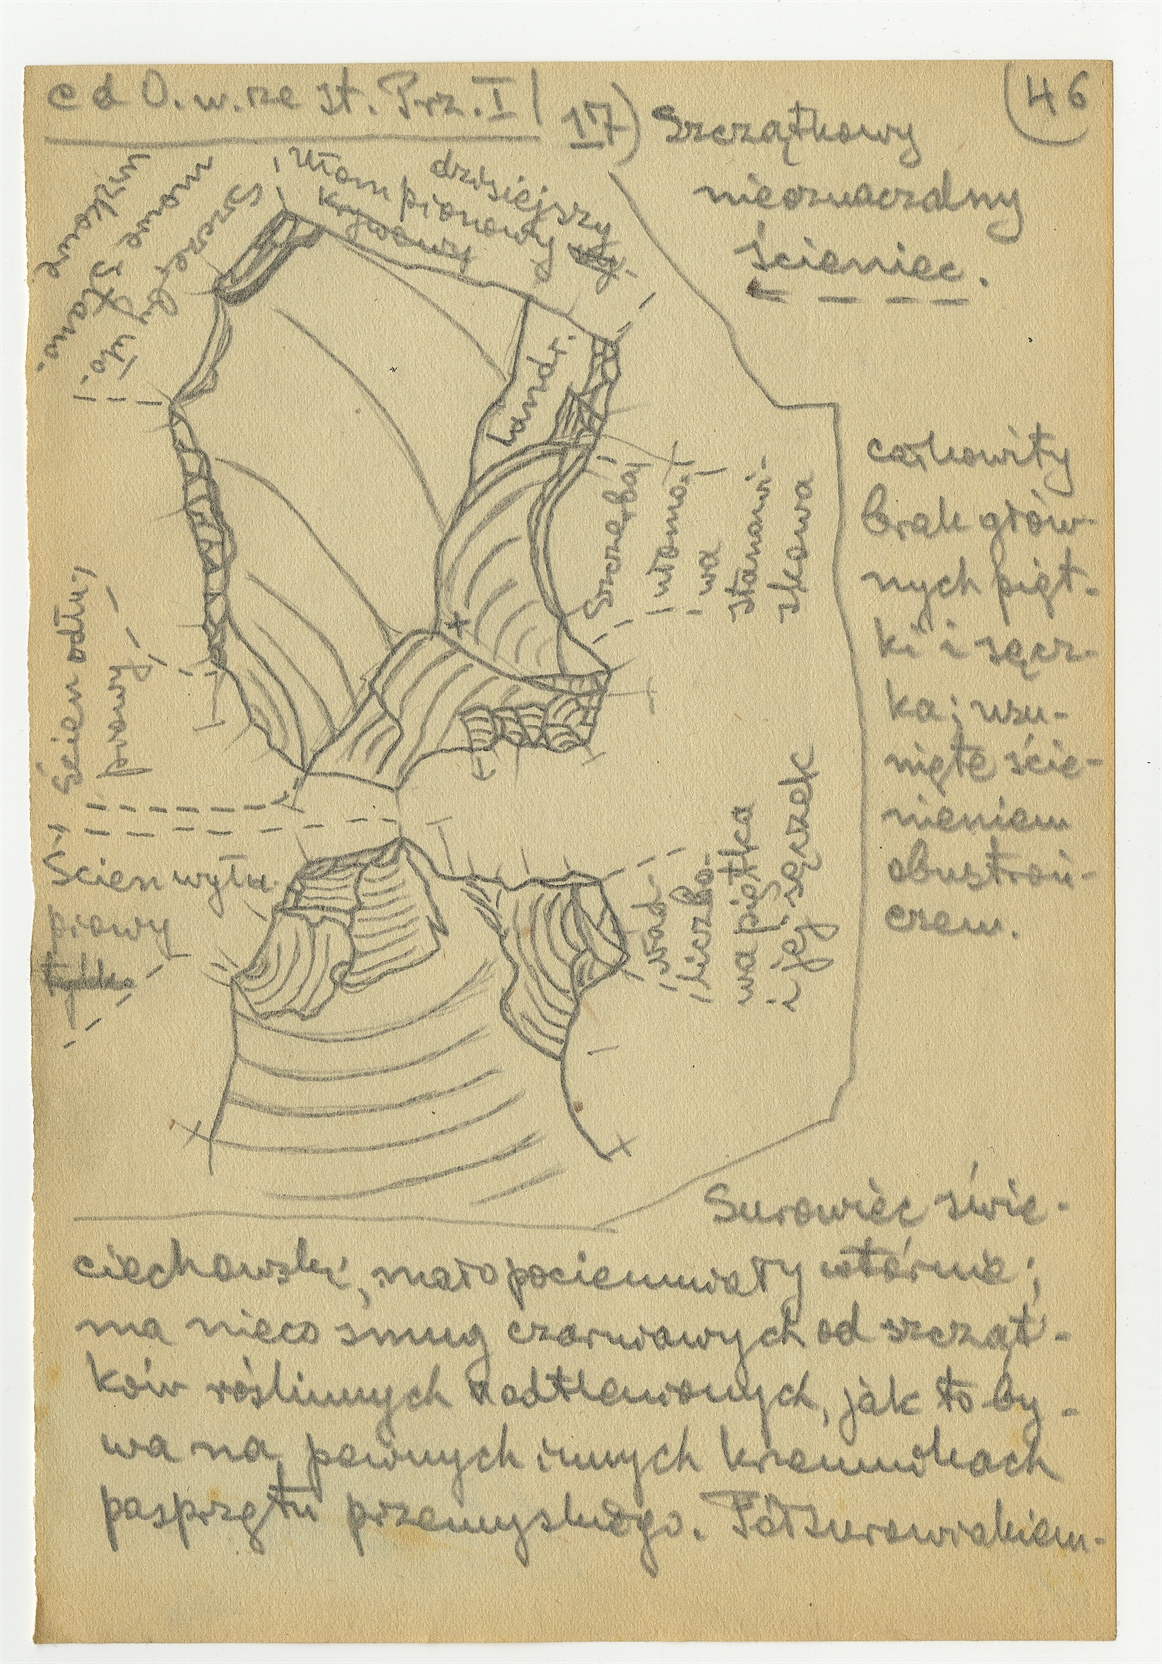 c d O. w. rze st. Prz. I
46
17) Szczątkowy
nieoznaczalny
ścieniec.
dzisiejszy
Ułom pionowy
krzywy
Szczerby uło-
mowe stano-
wiskowe
kandr.
Szczerba
ułomo-
wa
stanowi-
skowa
Ścien odłu-
pnowy
Ścien wyłu-
pnowy
tylko
ślad
liczbo-
wa piętka
i jej sęczek
całkowity
brak głów-
nych pięt-
ki i sęcz-
ka; usu-
nięte ście-
nieniem
obustron-
czem.
Surowiec świe-
ciechowski, mało pociemniały wtórnie;
ma nieco smug czarniawych od szcząt-
ków roślinnych odtlenionych, jak to by-
wa na pewnych innych krzemykach
posprzętu przemyskiego. Półsurowiakiem-